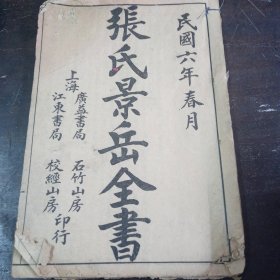 民國六年春月
張氏景岳全書
上海 廣益書局 石竹山房
江東書局 校經山房 印行